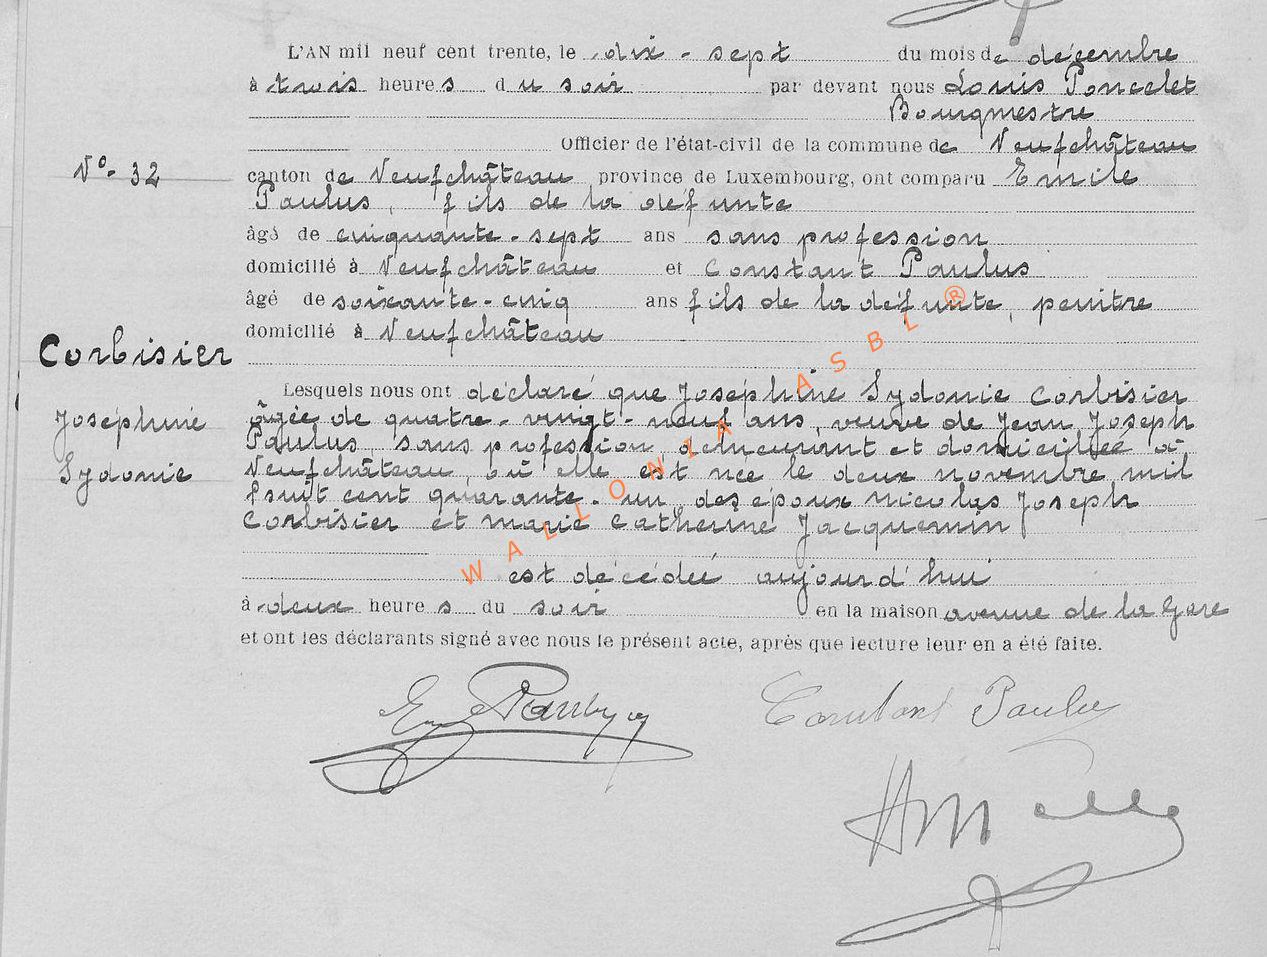 L'AN mil neuf cent trente, le dix-sept du mois de décembre
à trois heures du soir par devant nous Louis Poncelet
Bourgmestre
Officier de l'état-civil de la commune de Neufchâteau
N° 32
canton de Neufchâteau province de Luxembourg, ont comparu Emile
Paulus, fils de la defunte
âgé de cinquante-sept ans sans profession
domicilié à Neufchâteau et Constant Paulus
âgé de soixante-cinq ans fils de la défunte, peintre
domicilié à Neufchâteau
Corbisier
Joséphine
Sydonie
Lesquels nous ont déclaré que Joséphine Sydonie Corbisier
âgée de quatre-vingt-neuf ans, veuve de Jean Joseph
Paulus, sans profession, demeurant et domiciliée à
Neufchâteau, où elle est née le deux novembre mil
huit cent quarante-un, des époux Nicolas Joseph
Corbisier et Marie Catherine Jacquemin
est décédée aujourd'hui
à deux heures du soir en la maison avenue de la Gare
et ont les déclarants signé avec nous le présent acte, après que lecture leur en a été faite.
Em Paulus
Constant Paulus
WALLONIA ASBL ®